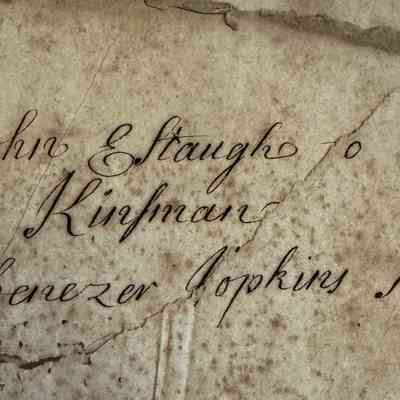 ohn Eſtaugh to
Kinſman
benezer Hopkins